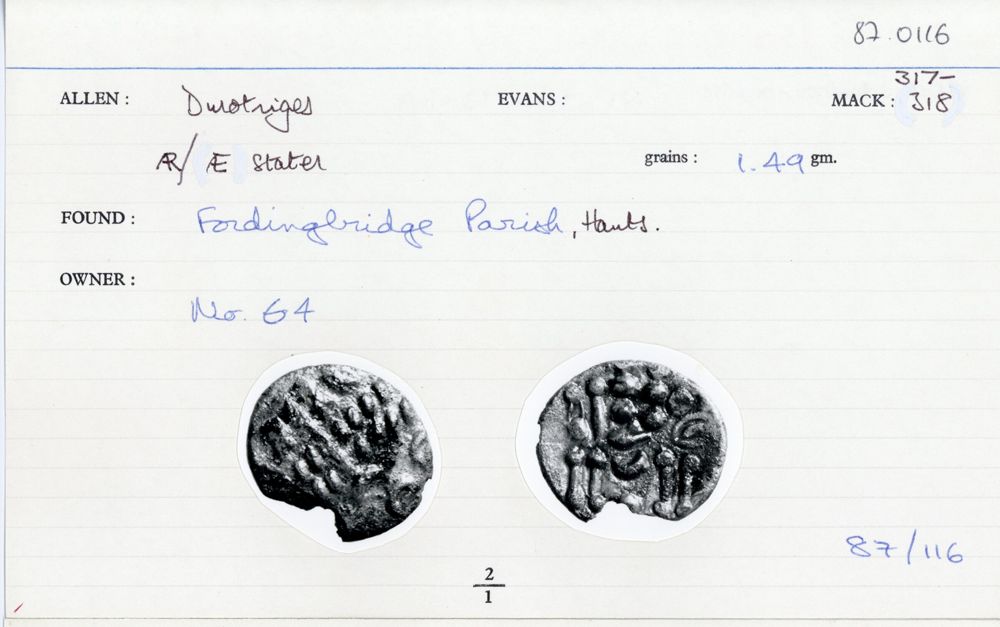 87.0116
317-
ALLEN : Durotriges EVANS : MACK : (318)
AR/ Æ Stater grains : 1.49 gm.
FOUND : Fordingbridge Parish, Hants.
OWNER :
No. 64
87/116
2
1